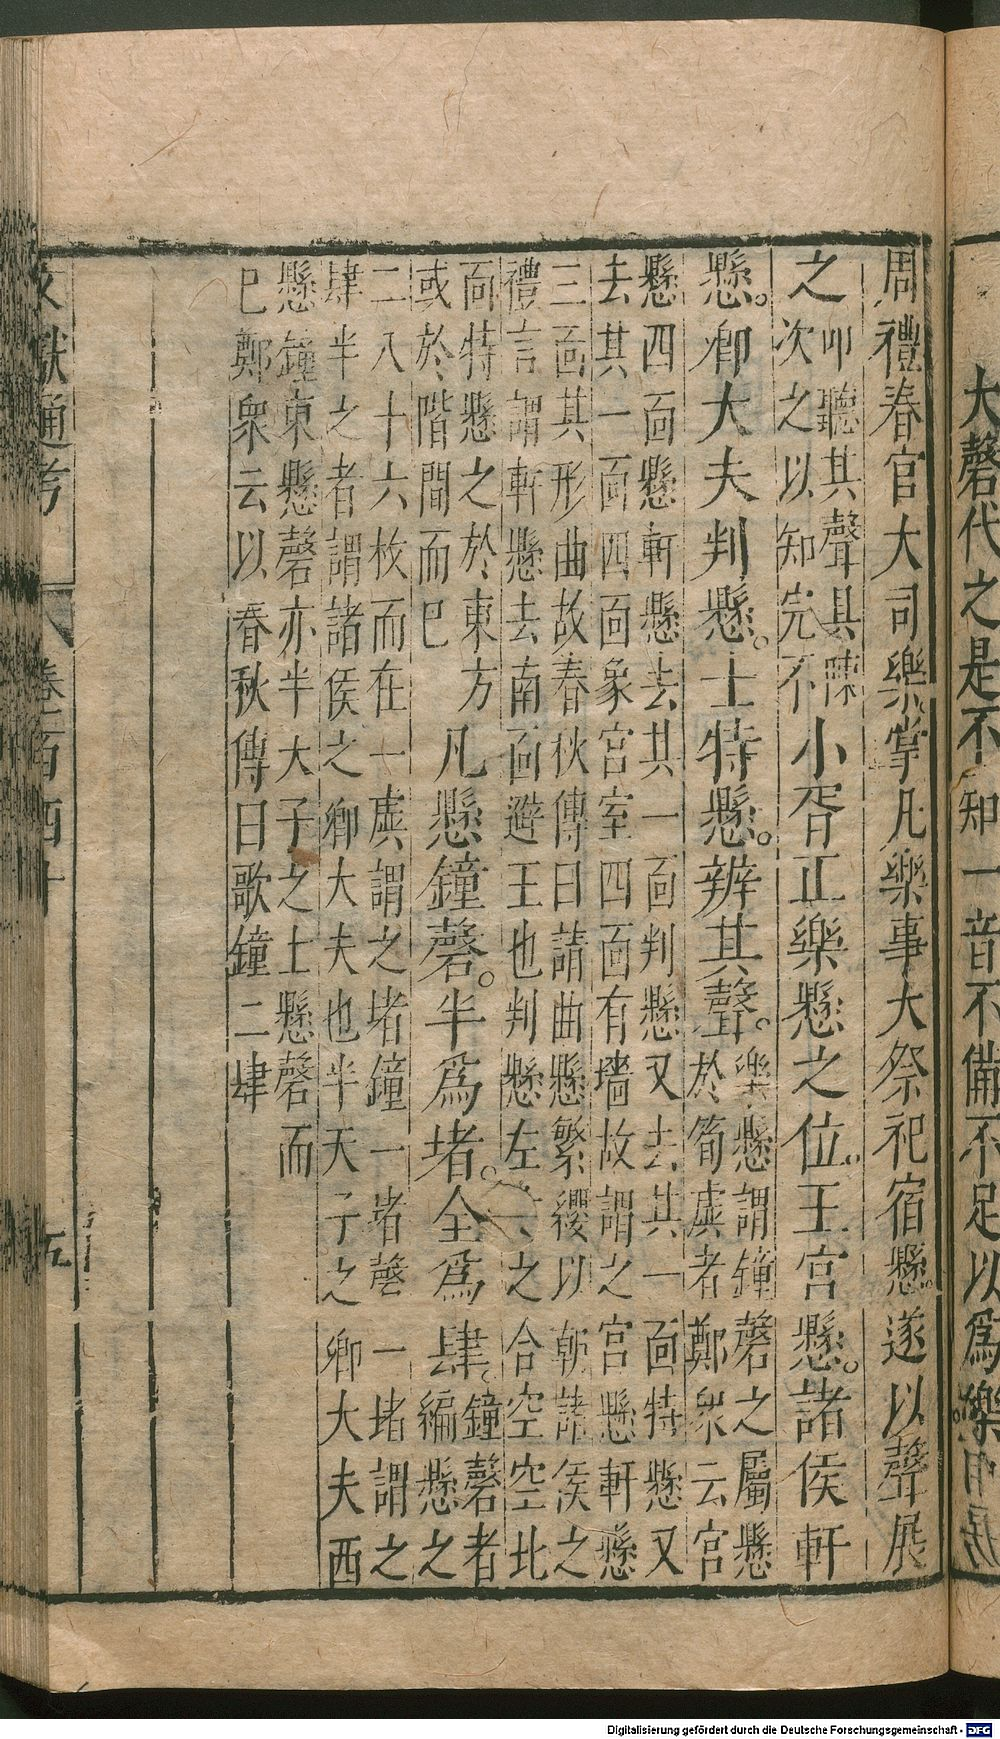 大磬代之是不知一音不備不足以爲樂
周禮春官大司樂掌凡樂事大祭祀宿懸遂以聲展
之
叩聽其聲具陳
次之以知完不
小胥正樂懸之位。王宮懸。諸侯軒
懸。卿大夫判懸。士特懸。辨其聲。
樂懸謂鐘磬之屬懸
於筍虡者鄭衆云宮
懸四面懸軒懸去其一面判懸又去其一面特懸又
去其一面四面象宮室四面有墻故謂之宮懸軒懸
三面其形曲故春秋傳曰請曲懸繁纓以朝諸侯之
禮言謂軒懸去南面避王也判懸左之合空空北
面特懸之於東方
或於階間而已
凡懸鐘磬。半爲堵。全爲肆。
鐘磬者
編懸之
二八十六枚而在一虡謂之堵鐘一堵磬一堵謂之
肆半之者謂諸侯之卿大夫也半天子之卿大夫西
懸鐘東懸磬亦半大子之士懸磬而
已鄭衆云以春秋傳曰歌鐘二肆
文獻通考 卷一百四十 五
Digitalisierung gefördert durch die Deutsche Forschungsgemeinschaft - DFG